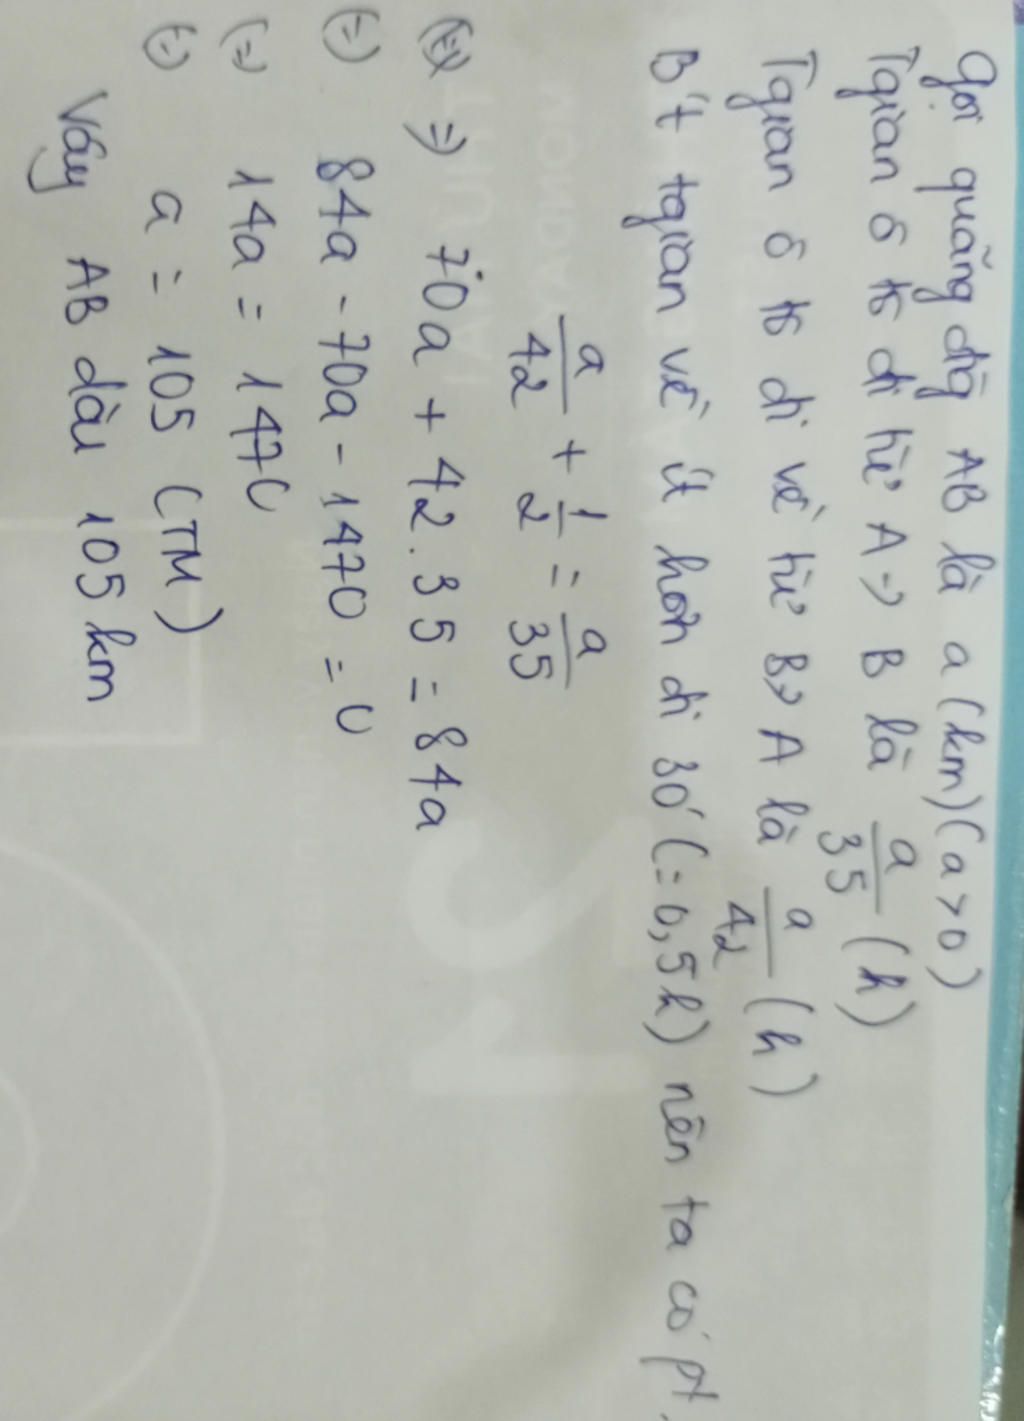 Gọi quãng đg AB là a (km) (a > 0)
Tgian ô tô đi từ A → B là a/35 (h)
Tgian ô tô đi về từ B → A là a/42 (h)
Bít tgian về ít hơn đi 30' (= 0,5h) nên ta có pt.
a/42 + 1/2 = a/35
⇒ 70a + 42.35 = 84a
(=) 84a - 70a - 1470 = 0
(=) 14a = 1470
(=) a = 105 (TM)
Vậy AB dài 105 km